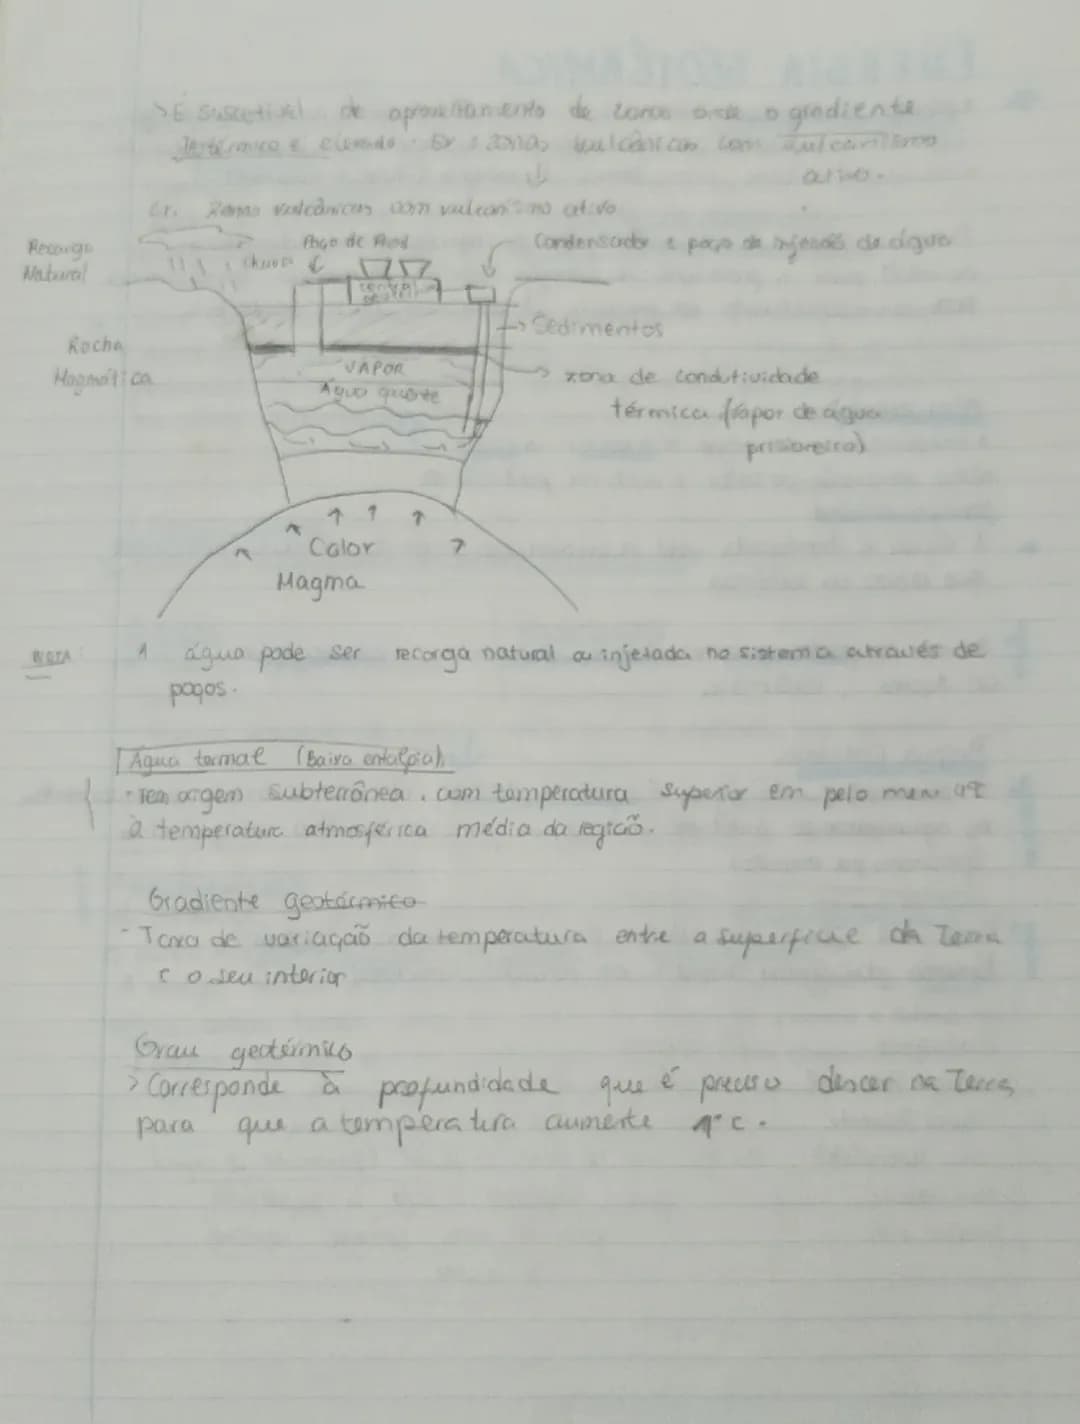 > É suscetível de aproveitamento de zonas onde o gradiente
geotérmico é elevado. Ex: zonas vulcânicas com vulcanismo
ativo.
Ex. Zonas vulcânicas com vulcanismo ativo
Recarga
Natural
chuva
Poço de Prod
Condensador e poço de injeção de água
central
Sedimentos
Rocha
Magmática
VAPOR
Água quente
zona de condutividade
térmica (vapor de água
prisioneiro)
Calor
Magma
NOTA
A água pode ser recarga natural ou injetada no sistema através de
poços.
Água termal (Baixa entalpia)
- Tem origem subterrânea, com temperatura superior em pelo men 4°C
à temperatura atmosférica média da região.
Gradiente geotérmico
- Taxa de variação da temperatura entre a superfície da Terra
e o seu interior
Grau geotérmico
> Corresponde à profundidade que é preciso descer na Terra
para que a temperatura aumente 1°C.